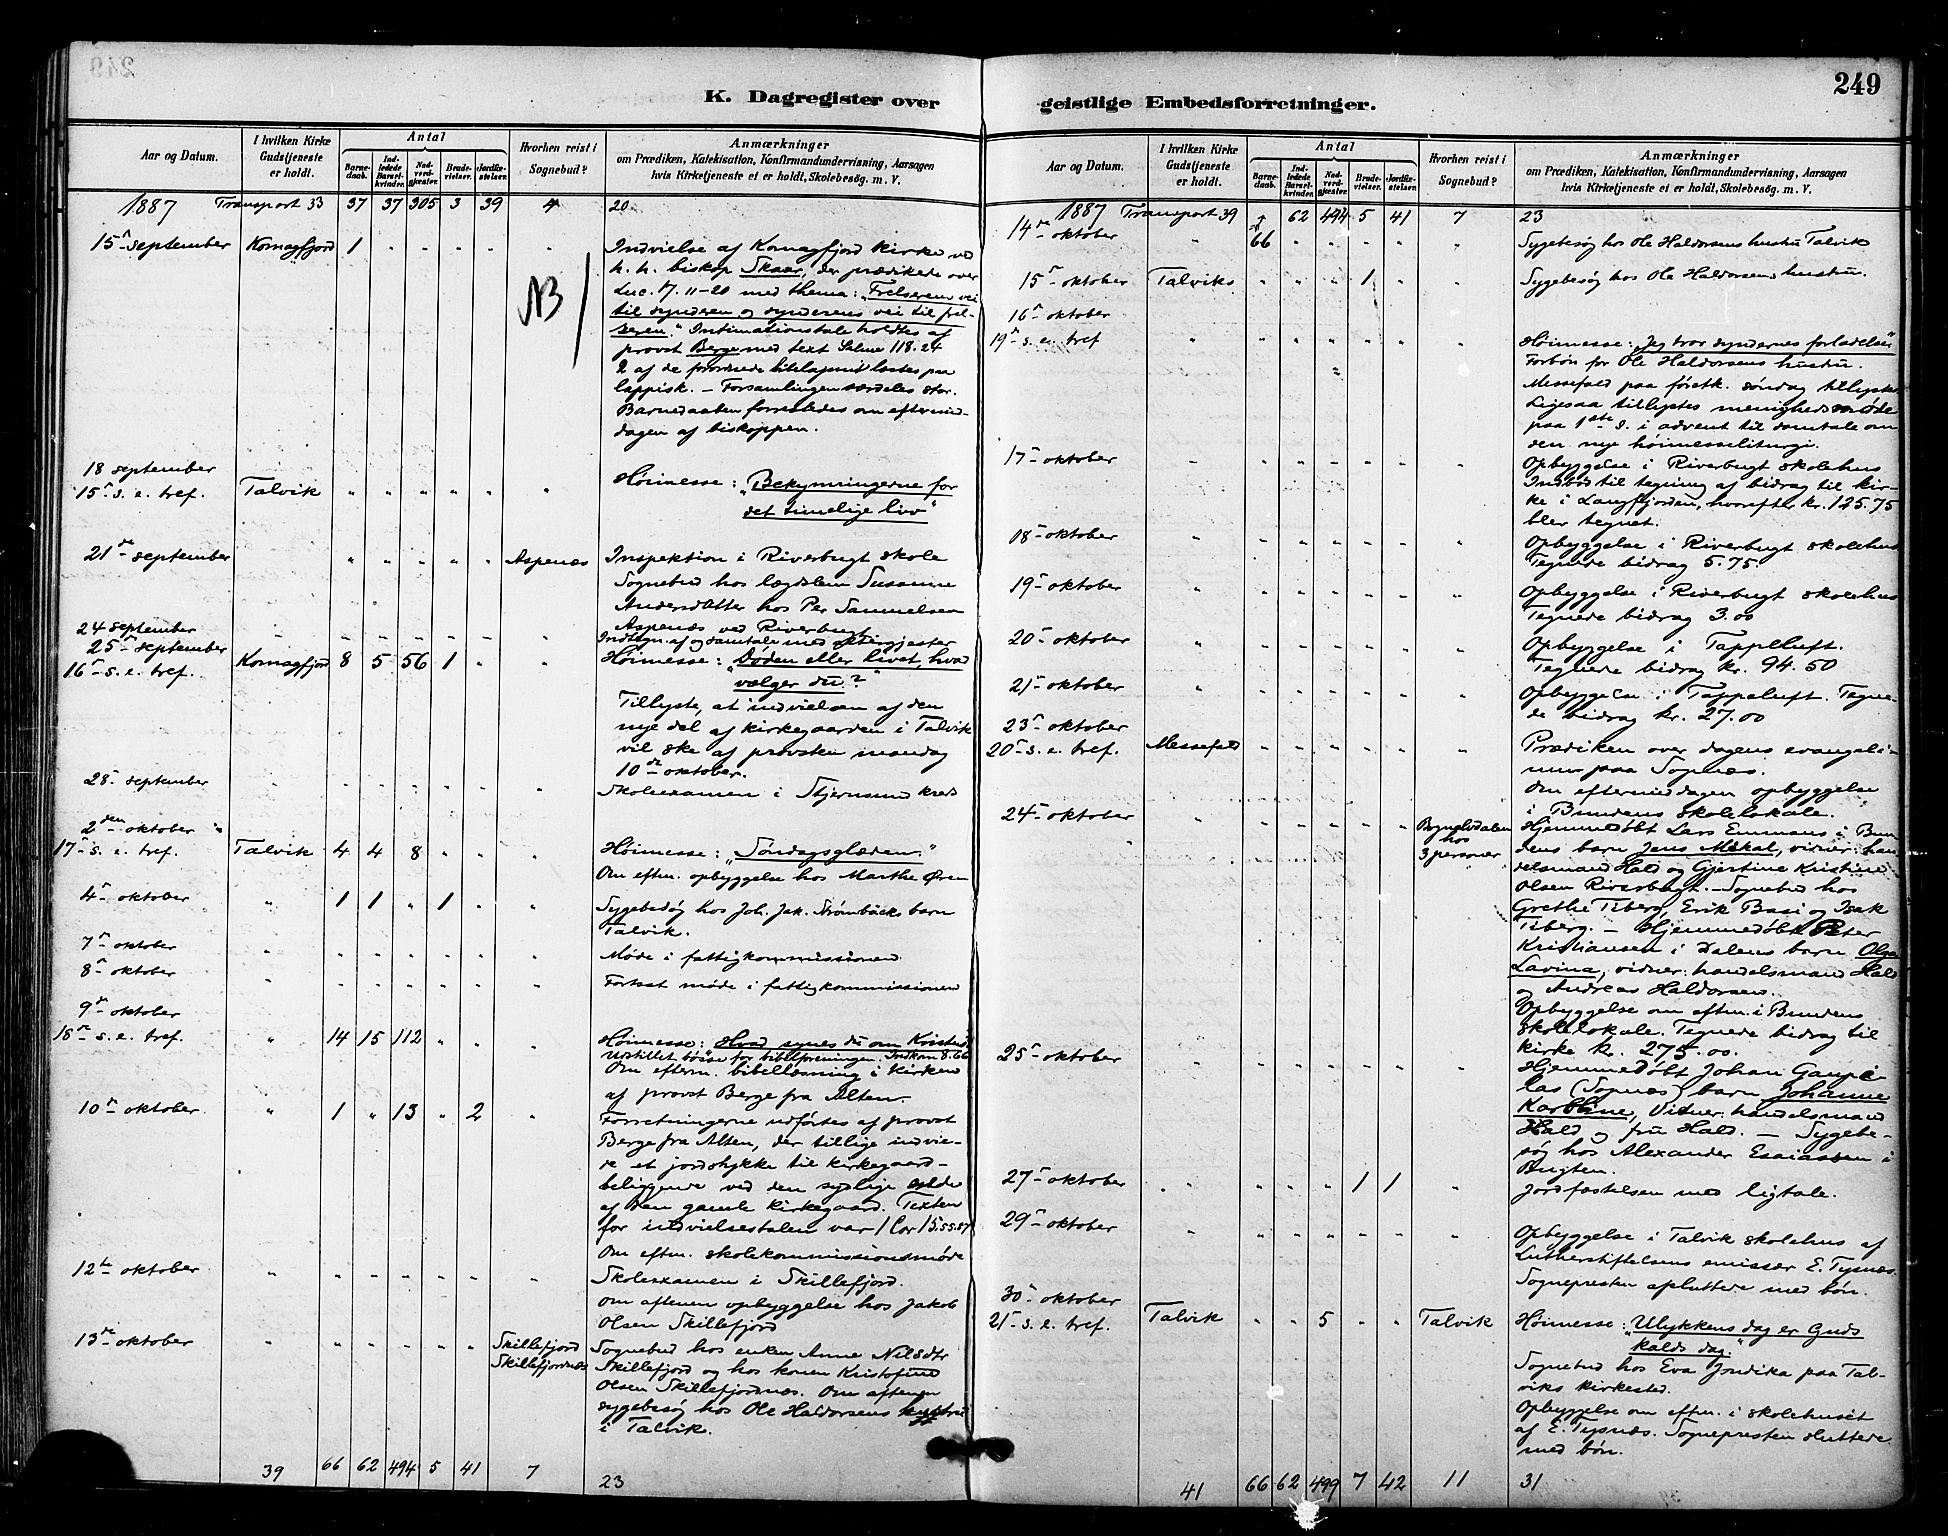 249
K. Dagregister over geistlige Embedsforretninger.
Aar og Datum.
I hvilken Kirke Gudstjeneste er holdt.
Antal
Barnedaab.
Indledede Barselkvinder.
Nadverdgjæster.
Brudevielser.
Jordfæstelser.
Hvorhen reist i Sognebud?
Anmærkninger
om Prædiken, Katekisation, Konfirmandundervisning, Aarsagen
hvis Kirketjeneste ei er holdt, Skolebesøg. m. V.
1887 Transport 33 37 37 305 3 39 4 20
15 september Komagfjord 1 " " " " " Indvielse af Komagfjord kirke ved
h. h. biskop Skaar, der prædikede over
Luc. 17. 11-20 med thema: "Frelserens vei
NB
til synderen og synderens vei til frel-
seren." Intimationstale holdtes af
provst Berge med text Salme 118.24
2 af de forordnede bibelafsnit læstes paa
lappisk. – Forsamlingen særdeles stor.
Barnedaaben forrettedes om eftermid-
dagen af biskoppen.
18 september
15 s. e. tref. Talvik " " " " " " Høimesse: "Bekymringerne for
det timelige liv"
21de september " " " " " Aspenæs Inspektion i Riverbugt skole
Sognebud hos lægdslem Susanne
Andersdatter hos Per Samuelsen
Aspenæs ved Riverbugt
24 september Indtegn. af og samtale med altergjester
25 september
16 s. e. tref. Komagfjord 8 5 56 1 " " Høimesse: "Døden eller livet, hvad
vælger du?"
Tillyste, at indvielsen af den
nye del af kirkegaarden i Talvik
vil ske af provsten mandag
10de oktober.
28 september " " " " " " " Skoleexamen i Stjernsund kreds
2den oktober
17 s. e. tref. Talvik 4 4 8 " " " Høimesse: "Søndagsglæden."
Om eftm. opbyggelse hos Marthe Øren
4 oktober " 1 1 " 1 " " Sygebesøg hos Joh. Jak. Strømbäcks barn
Talvik.
7 oktober " " " " " " " Møde i fattigkommissionen
8 oktober " " " " " " " Fortsat møde i fattigkommissionen
9 oktober
18 s. e. tref. " 14 15 112 " " " Høimesse: Hvad synes du om Kristus?
Opstillet bøsse for bibelforeningen. Indkom 8.66
Om efterm. bibellæsning i kirken
af provst Berge fra Alten.
10 oktober " 1 " 13 " 2 " Forretningerne udførtes af provst
Berge fra Alten, der tillige indvie-
de et jordstykke til kirkegaard –
beliggende ved den sydlige side
af den gamle kirkegaard. Texten
for indvielsestalen var 1 Cor 15.55.57
Om eftm. skolekommissionsmøde
12te oktober " " " " " " " Skoleexamen i Skillefjord.
Om aftenen opbyggelse hos Jakob
Olsen Skillefjord
13de oktober " " " " " " Skillefjord Skillefjordnæs Sognebud hos enken Anne Nilsdtr
Skillefjord og hos konen Kristofine
Olsen Skillefjordnæs. Om aftenen
sygebesøg hos Ole Haldorsens hustru
i Talvik.
39 66 62 494 5 41 7 23
249
Aar og Datum.
I hvilken Kirke Gudstjeneste er holdt.
Antal
Barnedaab.
Indledede Barselkvinder.
Nadverdgjæster.
Brudevielser.
Jordfæstelser.
Hvorhen reist i Sognebud?
Anmærkninger
om Prædiken, Katekisation, Konfirmandundervisning, Aarsagen
hvis Kirketjeneste ei er holdt, Skolebesøg. m. V.
1887 Transport 39 66 62 494 5 41 7 23
14 oktober " " " " " " Sygebesøg hos Ole Haldorsens hustru Talvik
15 oktober Talviks " " " 1 " " Sygebesøg hos Ole Haldorsens hustru.
16 oktober
19 s. e. tref " " " " " " " Høimesse: "Jeg tror syndernes forladelse"
Forbøn for Ole Haldorsens hustru.
Messefald paa førstk. søndag tillystes
Ligesaa tillystes menighedsmøde
paa 1ste s. i advent til samtale om
den nye høimesseliturgi.
17 oktober " " " " " " " Opbyggelse i Riverbugt skolehus
Indbød til tegning af bidrag til kir-
ke i Langfjorden, hvorefter kr. 125.75
blev tegnet.
18 oktober " " " " " " " Opbyggelse i Riverbugt skolehus
Tegnede bidrag 5.75.
19 oktober " " " " " " " Opbyggelse i Riverbugt skolehus
Tegnede bidrag 3.00
20 oktober " " " " " " " Opbyggelse i Tappeluft.
Tegnede bidrag kr. 94.50
21 oktober " " " " " " " Opbyggelse i Tappeluft. Tegne-
de bidrag kr. 27.00
23 oktober
20 s. e. tref. Messefald " " " " " " Prædiken over dagens evangeli-
um paa Sognæs.
Om eftermiddagen opbyggelse
i Bundens skolelokale.
24 oktober " " " " " Bognelvdalen hos 3 personer Hjemmedøbt Lars Emmans i Bun-
dens barn Jens Mikal, vidner: han-
delsmand Hald og Gjertine Kristine
Olsen Riverbugt. – Sognebud hos
Grethe Tiberg, Erik Basi og Isak
Tiberg. – Hjemmedøbt Peter
Kristiansen i Dalens barn Olga
Lavina, vidner: handelsmand Hald
og Andreas Haldorsen.
Opbyggelse om eftm. i Bundens
skolelokale. Tegnede bidrag til
kirke kr. 275.00.
25 oktober " " " " " " Hjemmedøbt Johan Gaupe-
las (Sognæs) barn Johanne
Karoline, Vidner: handelsmand
Hald og fru Hald. – Sygebe-
søg hos Alexander Esaiassen i
Bugten.
27 oktober " " " " 1 1 " Jordfæstelsen med ligtale.
29 oktober " " " " " " " Opbyggelse i Talvik skolehus af
Lutherstiftelsens emissær E. Tysnæs.
Sognepresten afsluttede med bøn.
30 oktober
21 s. e. tref. Talvik " " 5 " " Talvik Høimesse: "Ulykkens dag er Guds
kalds dag."
Sognebud hos Eva Jondika paa Tal-
viks kirkested.
Opbyggelse om eftm. i skolehuset
af E. Tysnæs. Sognepresten sluttede
med bøn.
41 66 62 499 7 42 11 31